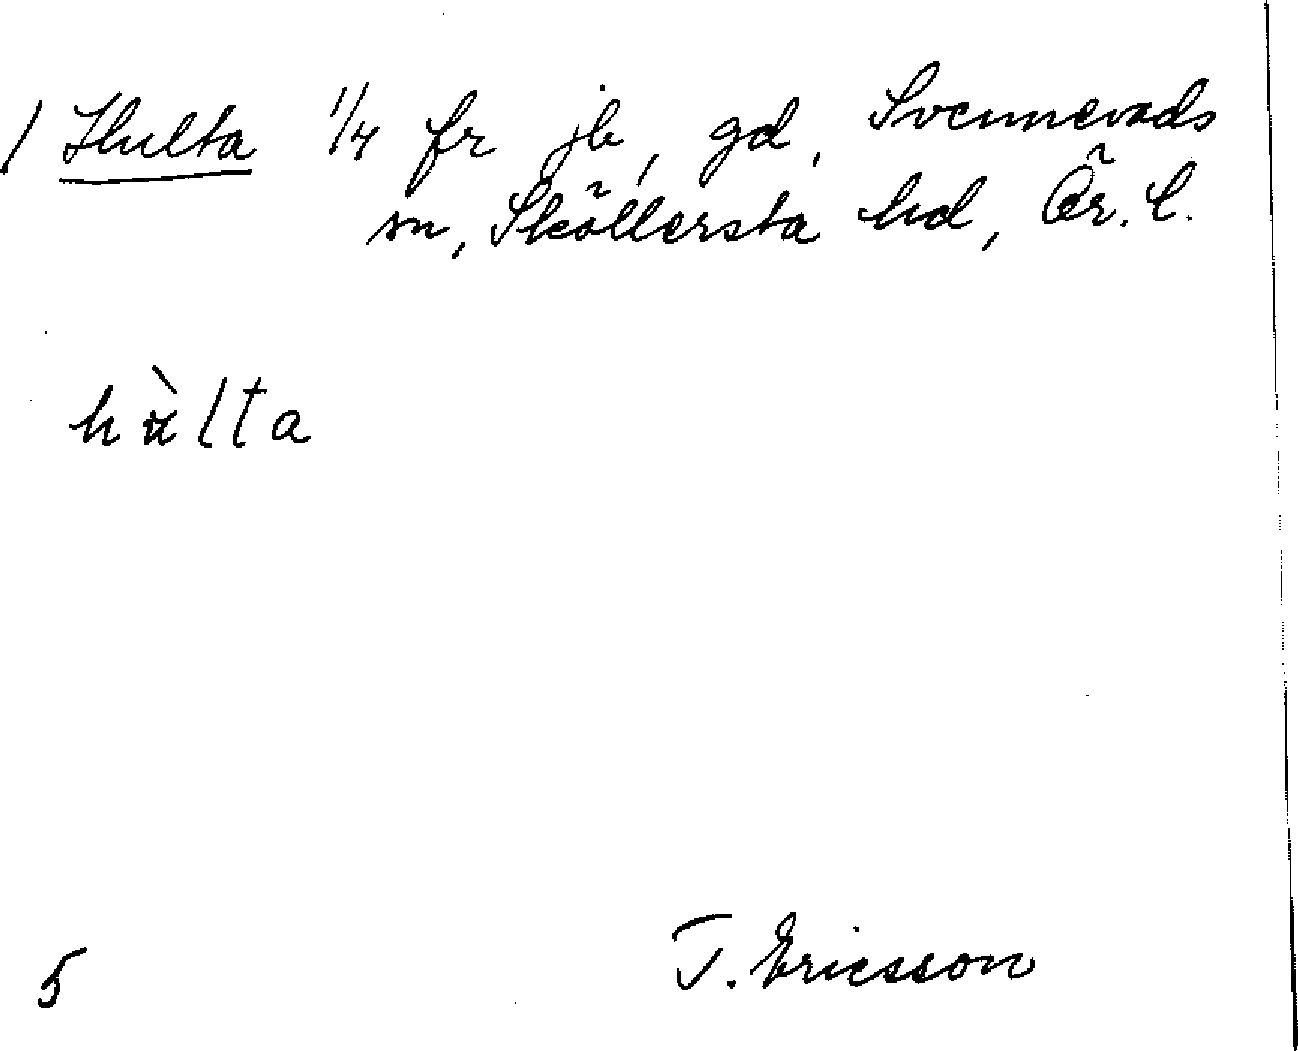 / Hulta 1/4 fr jb, gd, Svennevads
sn, Sköllersta hd, Ör. l.
hùlta
5
T. Ericsson